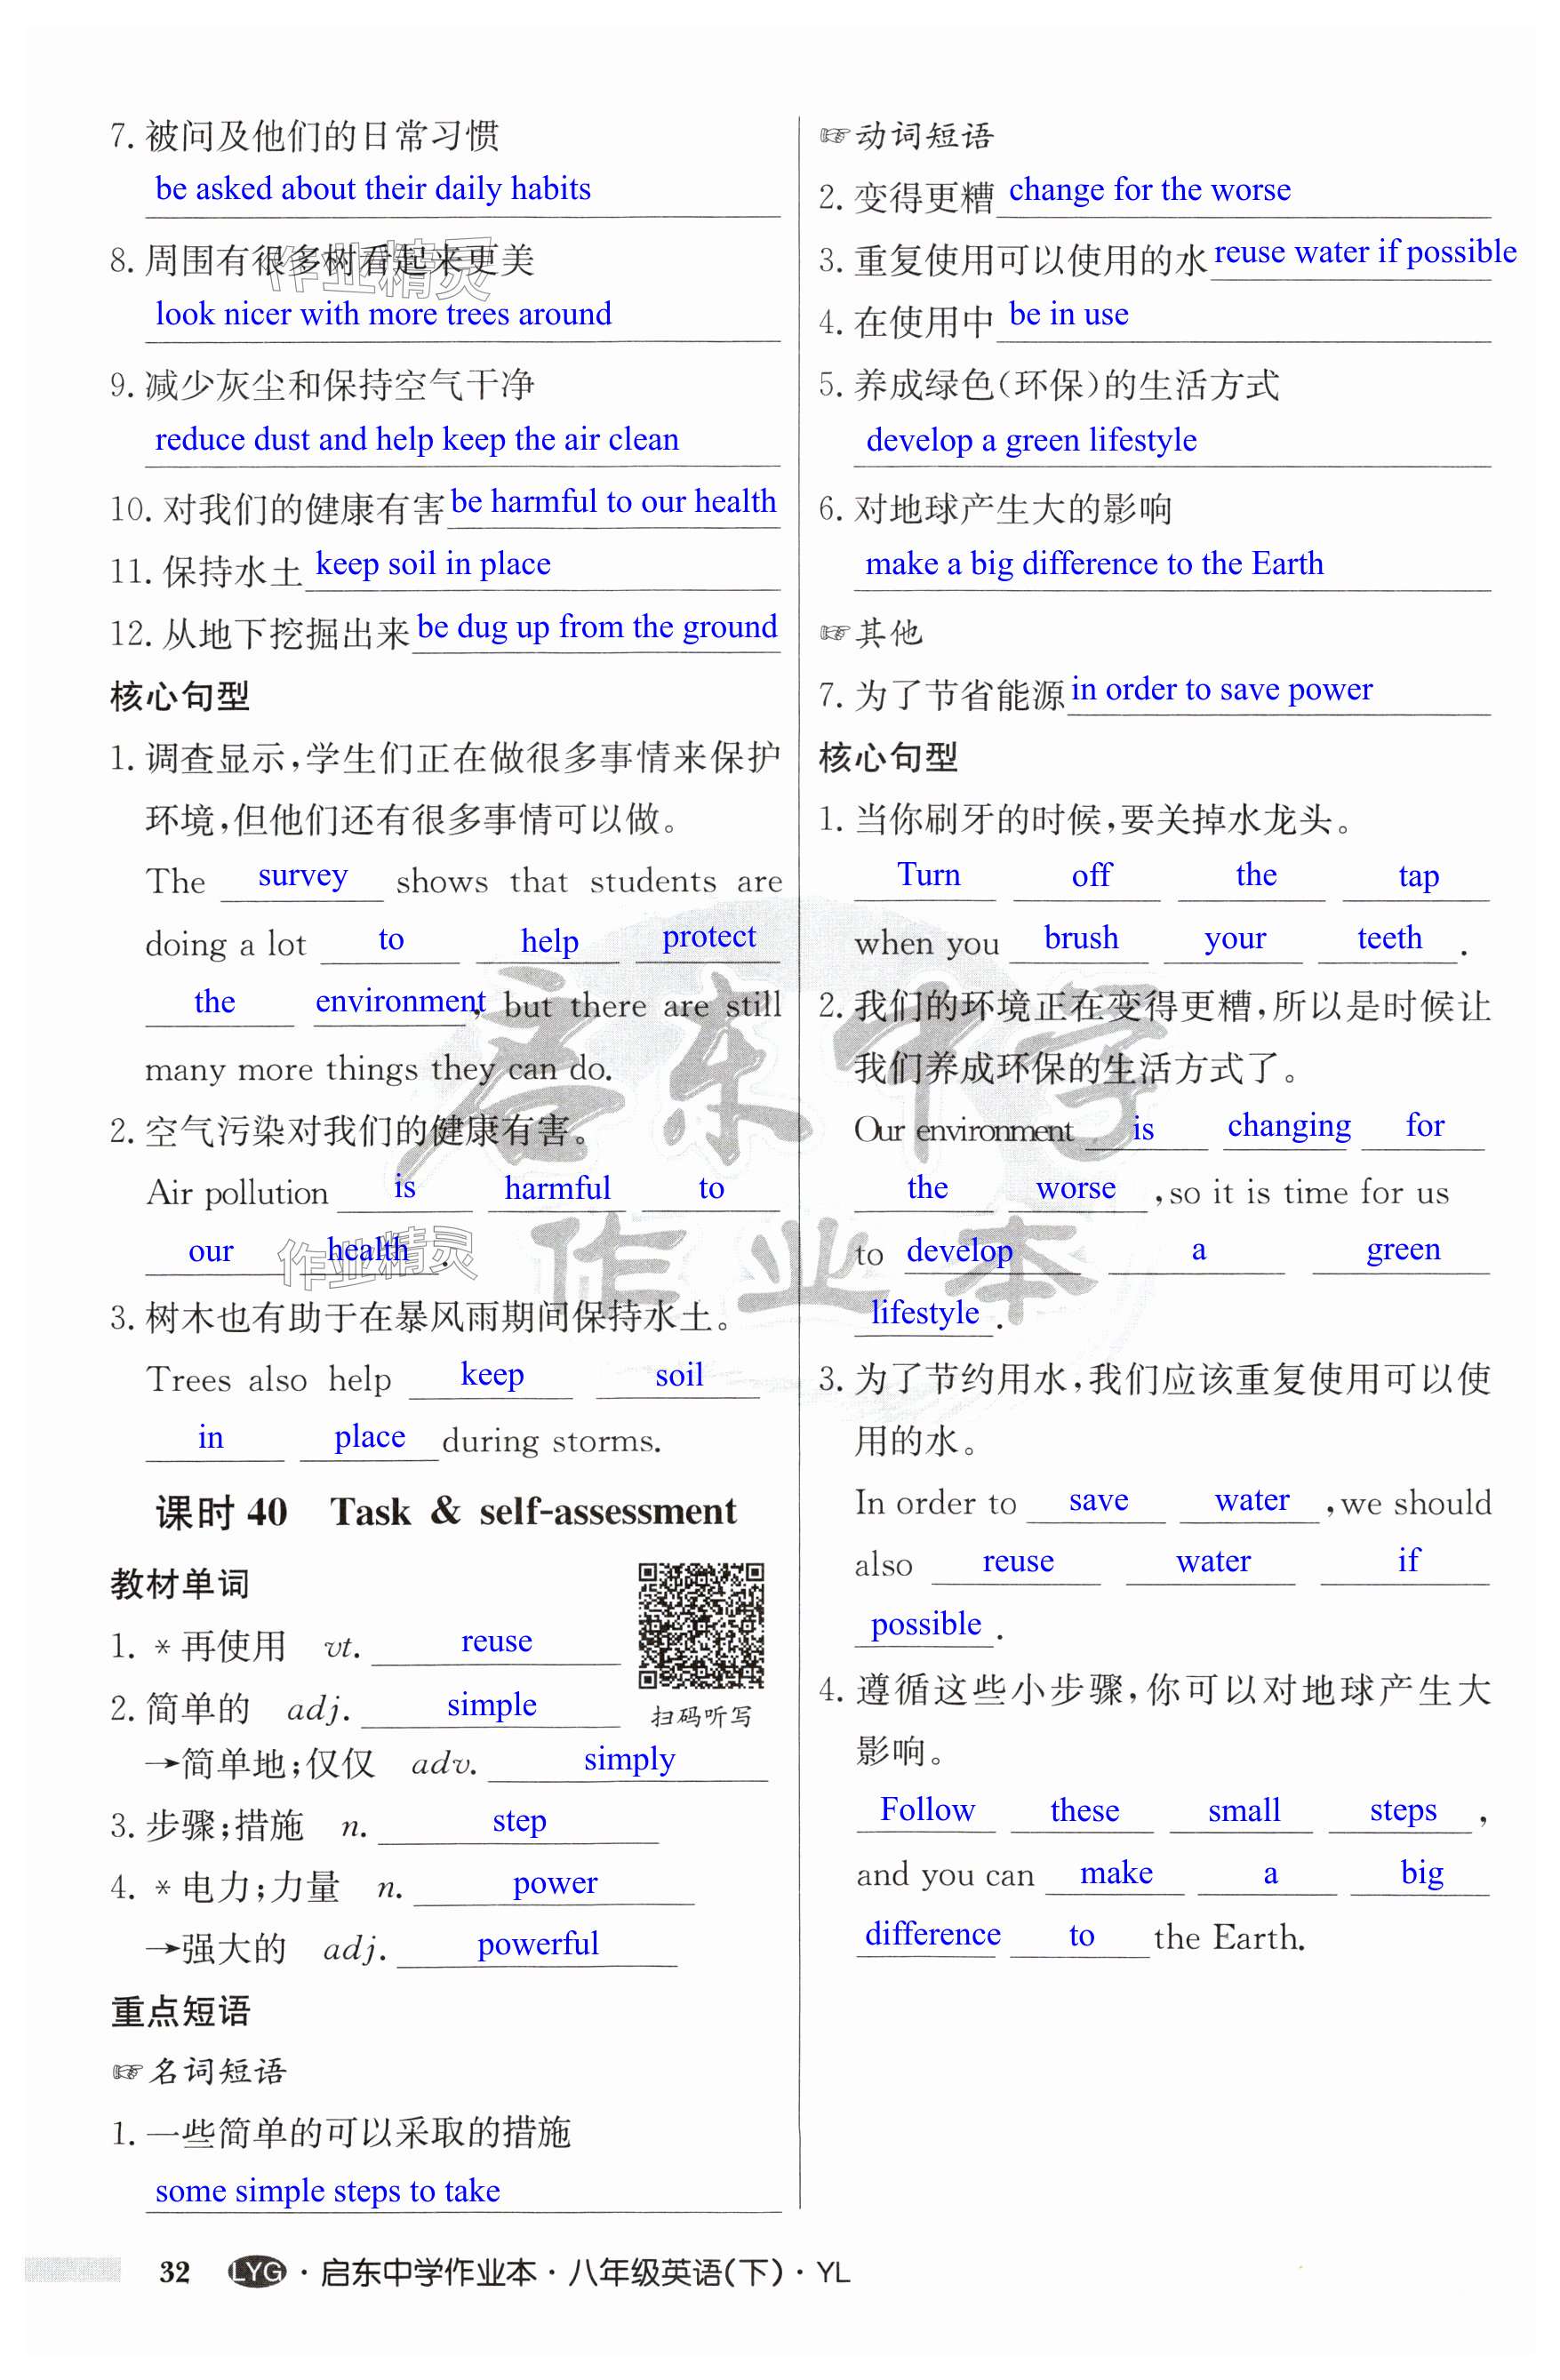 7. 被问及他们的日常习惯
be asked about their daily habits
8. 周围有很多树看起来更美
look nicer with more trees around
9. 减少灰尘和保持空气干净
reduce dust and help keep the air clean
10. 对我们的健康有害 be harmful to our health
11. 保持水土 keep soil in place
12. 从地下挖掘出来 be dug up from the ground
核心句型
1. 调查显示,学生们正在做很多事情来保护
环境,但他们还有很多事情可以做。
The survey shows that students are
doing a lot to help protect
the environment, but there are still
many more things they can do.
2. 空气污染对我们的健康有害。
Air pollution is harmful to
our health.
3. 树木也有助于在暴风雨期间保持水土。
Trees also help keep soil
in place during storms.
课时 40 Task & self-assessment
教材单词
1. *再使用 vt. reuse
2. 简单的 adj. simple
扫码听写
→简单地;仅仅 adv. simply
3. 步骤;措施 n. step
4. *电力;力量 n. power
→强大的 adj. powerful
重点短语
☞名词短语
1. 一些简单的可以采取的措施
some simple steps to take
☞动词短语
2. 变得更糟 change for the worse
3. 重复使用可以使用的水 reuse water if possible
4. 在使用中 be in use
5. 养成绿色(环保)的生活方式
develop a green lifestyle
6. 对地球产生大的影响
make a big difference to the Earth
☞其他
7. 为了节省能源 in order to save power
核心句型
1. 当你刷牙的时候,要关掉水龙头。
Turn off the tap
when you brush your teeth.
2. 我们的环境正在变得更糟,所以是时候让
我们养成环保的生活方式了。
Our environment is changing for
the worse, so it is time for us
to develop a green
lifestyle.
3. 为了节约用水,我们应该重复使用可以使
用的水。
In order to save water, we should
also reuse water if
possible.
4. 遵循这些小步骤,你可以对地球产生大
影响。
Follow these small steps,
and you can make a big
difference to the Earth.
启东中学
作业本
作业精灵
作业精灵
32 LYG·启东中学作业本·八年级英语(下)·YL